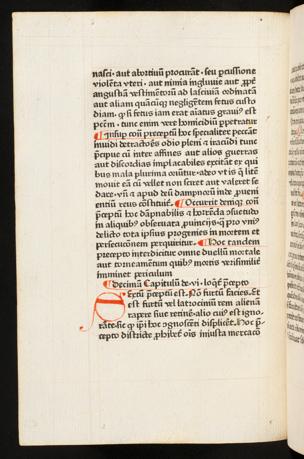 nasci · aut abortiuū procurāt · seu ꝑcussione
violēta vteri · aut nimia ingluuie aut ꝓpt̄
angustiā vestimētoꝝ ad lasciuiā ordinatā
aut aliam quācūqꝫ negligētem fetus custo
diam · qꝛ si fetus iam erat aīatus grauiꝰ est
pctm̄ · tunc enim vere homicidiū ꝑpetratur
¶ Insuꝑ cont̄ preceptū hoc specialiter peccāt
inuidi detractores odio pleni et iracūdi tunc
p̄cipue cū inter affines aut alios guerras
aut discordias implacabiles excitāt ex qui
bus mala plurima oriūtur
mouit eā cū vellet non sciret aut valeret se
dare vn̄ et apud deū dampnoꝝ inde ꝓueni
entiū reus cōstituit̄ · ¶ Occurrit demqꝫ con̄
p̄ceptū hoc dāpnabilis et horrēda ꝯsuetudo
in aliquibꝰ obseruata ꝓuincijs qua ꝓ vniꝰ
delicto tota ipsius progenies in mortem et
persecucionem perquiritur · ¶ Hoc tandem
precepto interdicitur omne duellū mortale
aut torneamētum quibꝰ mortis verisimile
imminet periculum
¶ Decimū Capitulū de · vi · loqt̄ p̄cepto
Sextū p̄ceptū est · Nō furtū facies · Et
est furtū vel latrociniū rem alienā
rapere siue retinere alio cuiꝰ est igno-
rāte sic qꝛ ipi hoc ꝯgnosceti displicet · Hoc p̄-
cepto districte ꝓhibet̄ oīs iniusta mercacō